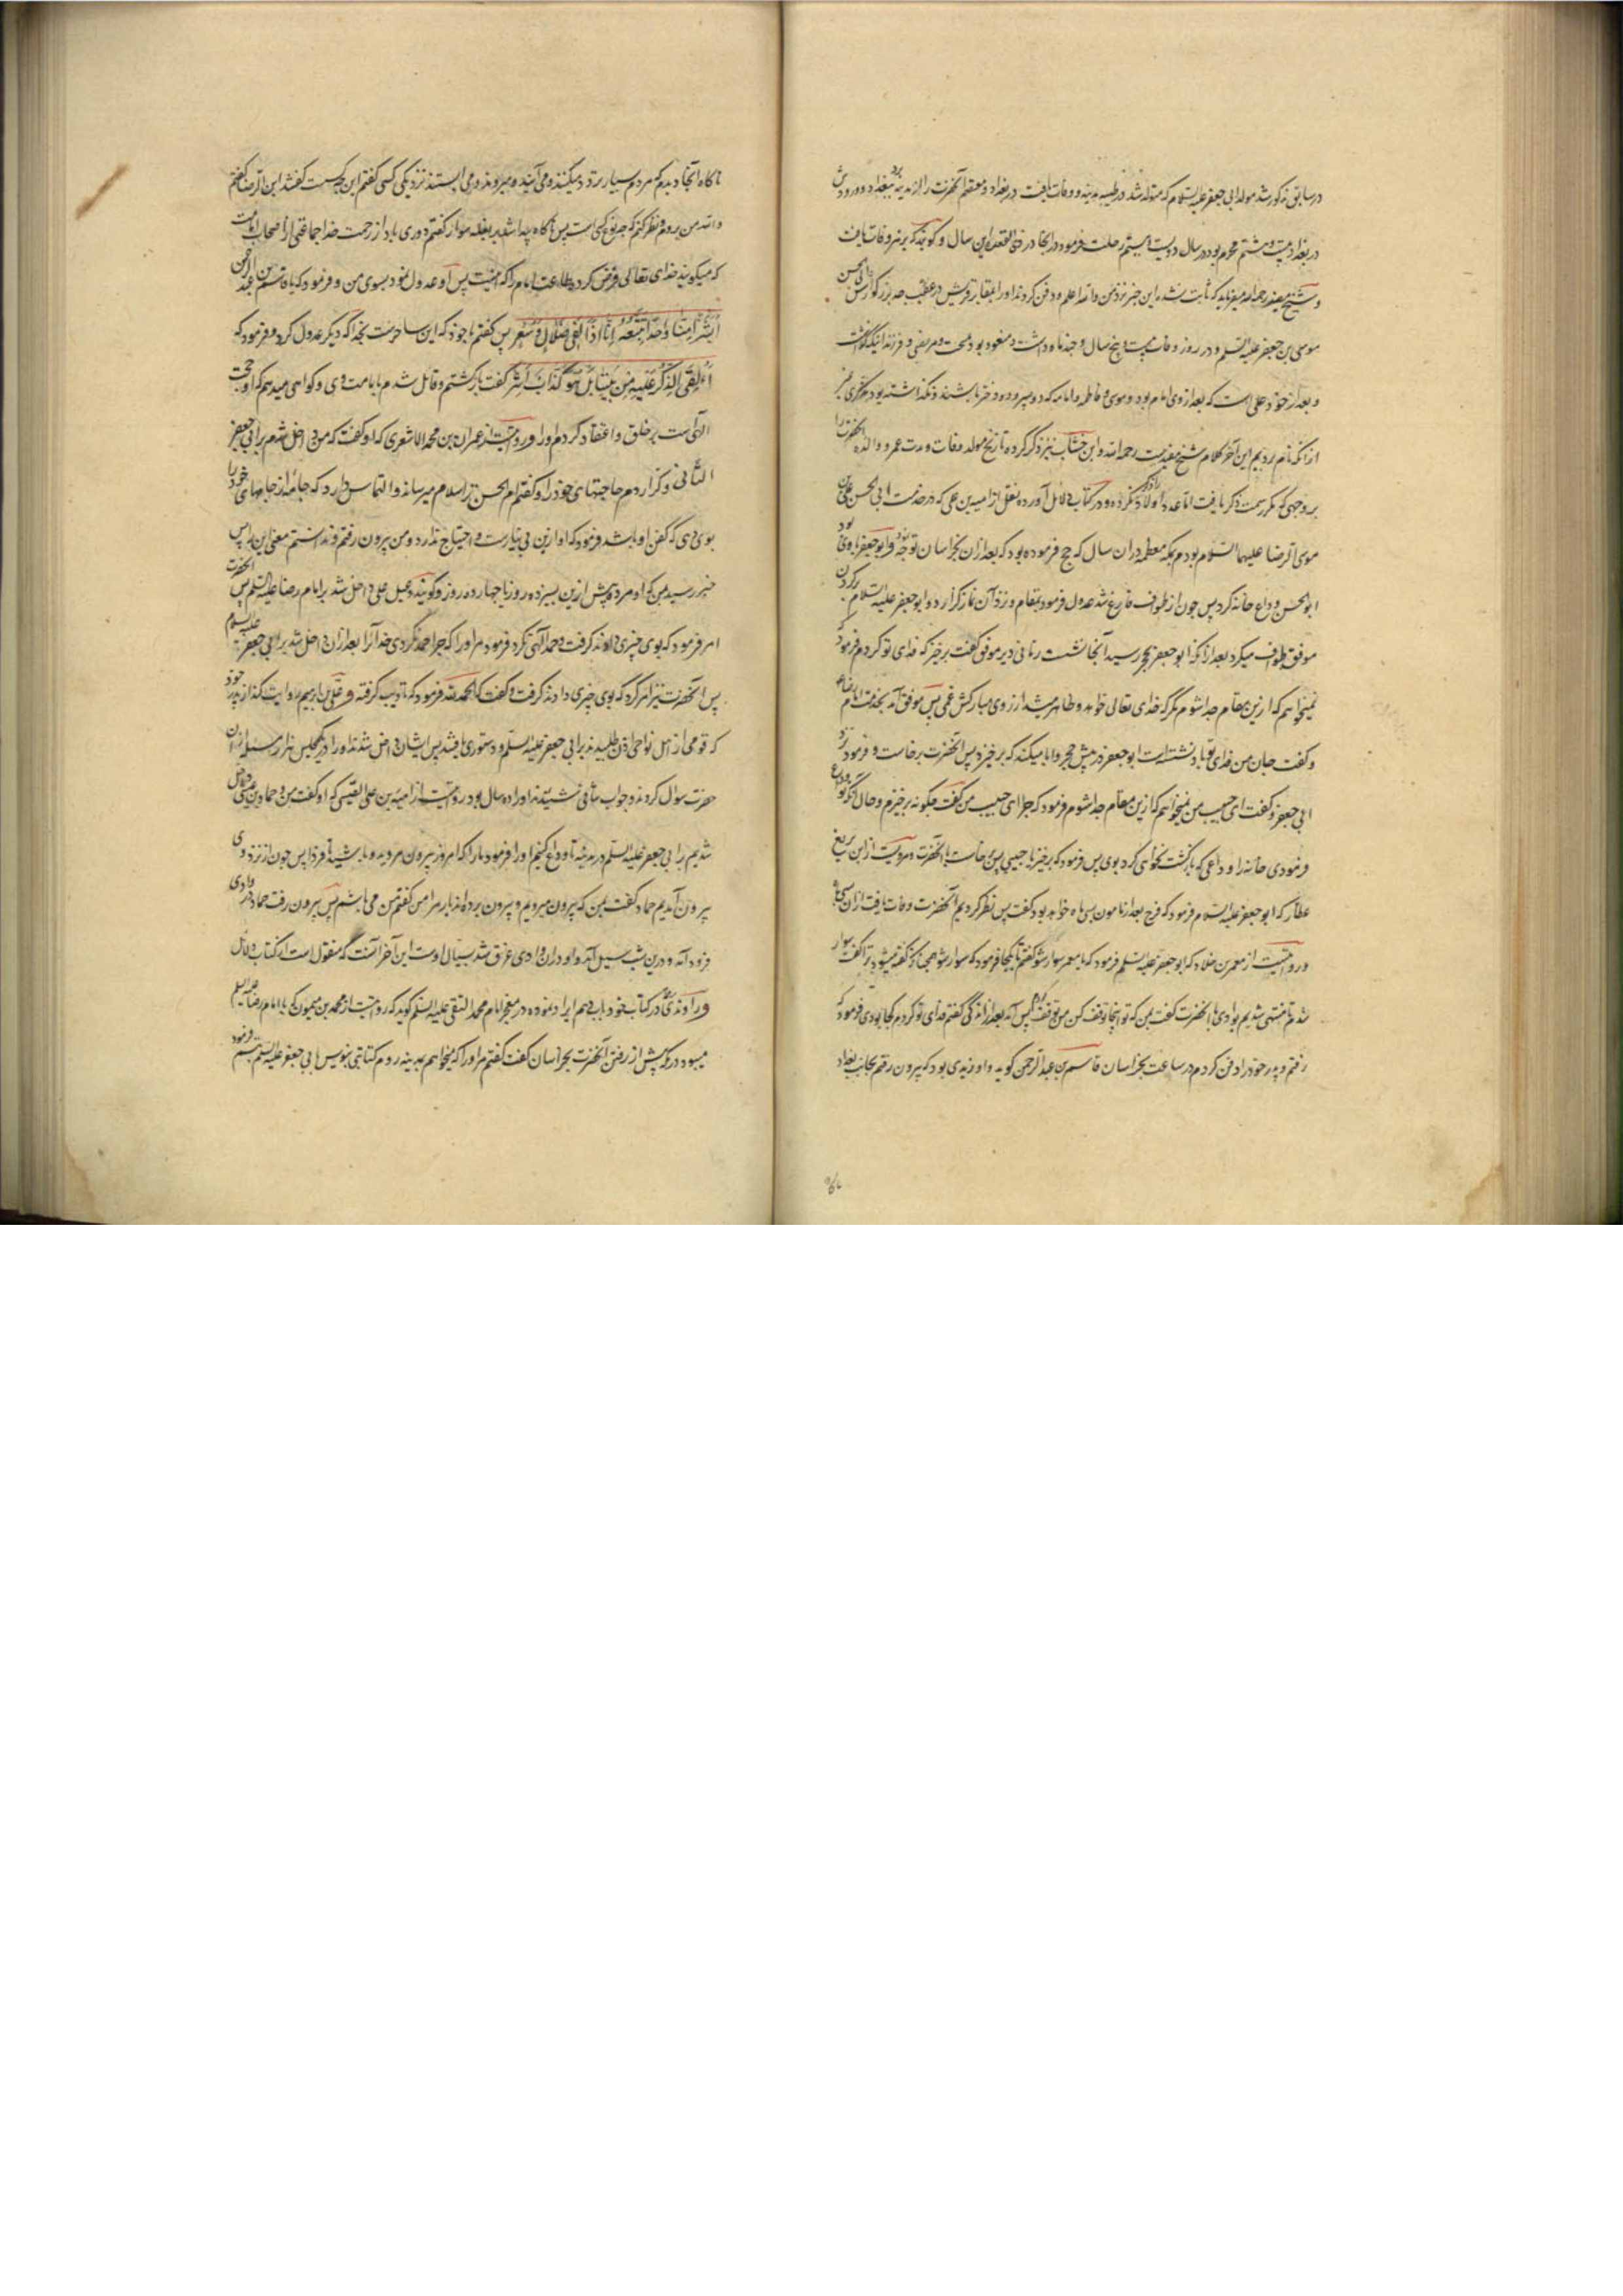 در سابق مذکور شد مولد ابی جعفر علیه السلام که متولد شد در طیبه مدینه و وفات یافت در بغداد و معتصم آنحضرت را از مدینه ببغداد برد و ورودش
در بغداد بیست و هشتم محرم بود در سال دویست و بیستم رحلت فرمود در آنجا در ذی القعده این سال و گویند که بزهر وفات یافت
و شیخ مفید رحمه الله میفرماید که ثابت نشد این خبر نزد من والله اعلم و دفن کردند او را بمقابر قریش در عقب جد بزرگوارش ابی الحسن
موسی بن جعفر علیه السلم و در روز وفات بیست و پنج سال و چند ماه داشت و منعوت بود بمنتجب و مرتضی و فرزند
و بعد از خود علی است که بعد از وی امام بود و موسی و فاطمه و امامه که دو پسر و دو دختر باشند و نگذاشته بود مذکری غیر
از آنکه نام بردیم این آخر کلام شیخ مفید است رحمه الله و ابن خشاب نیز ذکر کرده تاریخ مولد و وفات و مدت عمر و والده آنحضرت را
بر وجهی که مکرر سمت ذکر یافت اما عدد اولاد را ذکر نکرده و در کتاب دلایل آورده بنقل از امیه بن علی که در خدمت ابی الحسن علی بن
موسی الرضا علیهما السلام بودم بمکه معظمه در ان سال که حج فرموده بود که بعد از ان بخراسان توجه نمود و ابو جعفر با وی بود
ابو الحسن وداع خانه کرد پس چون از طواف فارغ شد عدول فرمود بمقام و نزد آن نماز گزارد و ابو جعفر علیه السلام بر گردن
موفق طواف میکرد بعد از آنکه ابو جعفر بحجر رسید آنجا نشست زمانی دیر موفق گفت برخیز که فدای تو گردم فرمود که
نمیخواهم که ازین مقام جدا شوم مگر که خدای تعالی خواهد و ظاهر میشد از روی مبارکش غمی پس موفق آمد بخدمت امام رضا ع
و گفت جان من فدای تو باد نشسته است ابو جعفر در پیش حجر و ابا میکند که برخیزد پس آنحضرت برخاست و فرمود نزد
ابی جعفر و گفت ای حبیب من نمیخواهم که ازین مقام جدا شوم فرمود که چرا ای حبیب من گفت چگونه برخیزم و حال آنکه تو وداع
فرمودی خانه را وداعی که بازگشت نخواهی کرد بوی پس فرمود که برخیز یا حبیبی پس برخاست با آنحضرت و مرویست از ابن بزیع
عطار که ابو جعفر علیه السلام فرمود که فرج بعد از مامون بسی ماه خواهد بود گفت پس نظر کردیم آنحضرت وفات یافت از ان سی ماه
و روایتست از معمر بن خلاد که ابو جعفر علیه السلم فرمود که یا معمر سوار شو گفتم تا بکجا فرمود که سوار شو همچنانکه گفته میشود ترا گفت سوار
شدم تا منتهی شدیم بوادی یا آنحضرت گفت بمن که تو اینجا توقف کن من توقف کردم پس آمد بعد از اندکی گفتم فدای تو گردم کجا بودی فرمود که
رفتم و پدر خود را دفن کردم در ساعت بخراسان قاسم بن عبد الرحمن گوید و او زیدی بود که بیرون رفتم بجانب بغداد
ناگاه آنجا دیدم که مردم بسیار تردد میکنند و می آیند و میروند و می ایستند نزدیکی کسی گفتم این چیست گفتند ابن الرضا گفتم
والله من بروم و نظر کنم که چه نوع کسی است پس ناگاه پیدا شد بر بغله سوار گفتم دوری باد از رحمت خدا جماعتی از اصحاب امامت
که میگویند خدای تعالی فرض کرده طاعت امام را که اینست پس او عدول نمود بسوی من و فرمود که یا قاسم بن عبد الرحمن
أبشرا منا واحدا نتبعه إنا إذا لفی ضلال وسعر پس گفتم با خود که این ساحرست بخدا که دیگر عدول کرد و فرمود که
أءلقی الذکر علیه من بیننا بل هو کذاب أشر گفت بازگشتم و قایل شدم بامامت وی و گواهی میدهم که او حجت
الهی است بر خلق و اعتقاد کردم او را و روایتست از عمران بن محمد الاشعری که او گفت که من داخل شدم بر ابی جعفر
الثانی و گزاردم حاجتهای خود را و گفتم ام الحسن ترا سلام میرساند و التماس دارد که جامه از جامهای خود را
بوی دهی که کفن او باشد فرمود که او ازین بی نیازست و احتیاج ندارد و من بیرون رفتم و ندانستم معنی این را پس
خبر رسید بمن که او مرده پیش ازین بسیزده روز یا چهارده روز و گویند دعبل علی داخل شد بر امام رضا علیه السلم پس آنحضرت
امر فرمود که بوی چیزی دادند گرفت و حمد الهی نکرد فرمود مر او را که چرا حمد نکردی خدا را بعد از ان داخل شد بر ابی جعفر علیه السلام
پس آنحضرت نیز امر کرد که بوی چیزی دادند گرفت و گفت که الحمد لله فرمود که تادیب گرفته و علی بن ابراهیم روایت کند از پدر خود
که قومی از اهل نواحی اذن طلبیدند بر ابی جعفر علیه السلم و دستوری یافتند پس ایشان داخل شدند او را در یک مجلس هزار مسئله از ان
حضرت سوال کردند و جواب شافی شنیدند او را ده سال بود روایتست از امیه بن علی القیسی که او گفت من و حماد بن عیسی داخل
شدیم بر ابی جعفر علیه السلم در مدینه تا وداع کنیم او را فرمود ما را که امروز بیرون مروید و باشید تا فردا پس چون از نزد وی
بیرون آمدیم حماد گفت بمن که بیرون میرویم و بیرون برده اند بار مرا من گفتم من می باشم پس بیرون رفت حماد در وادی
فرود آمد و درین شب سیل آمد و او در ان وادی غرق شد بسیال اوست این آخر آنست که منقول است از کتاب دلایل
و راوندی در کتاب خود بابی دهم ایراد نموده در معجز امام محمد التقی علیه السلم گوید که روایتست از محمد بن میمون که با امام رضا علیه السلم
میبود در مکه پیش از رفتن آنحضرت بخراسان گفت گفتم مر او را که میخواهم بمدینه روم کتابتی بنویس بابی جعفر علیه السلم تبسم فرمود